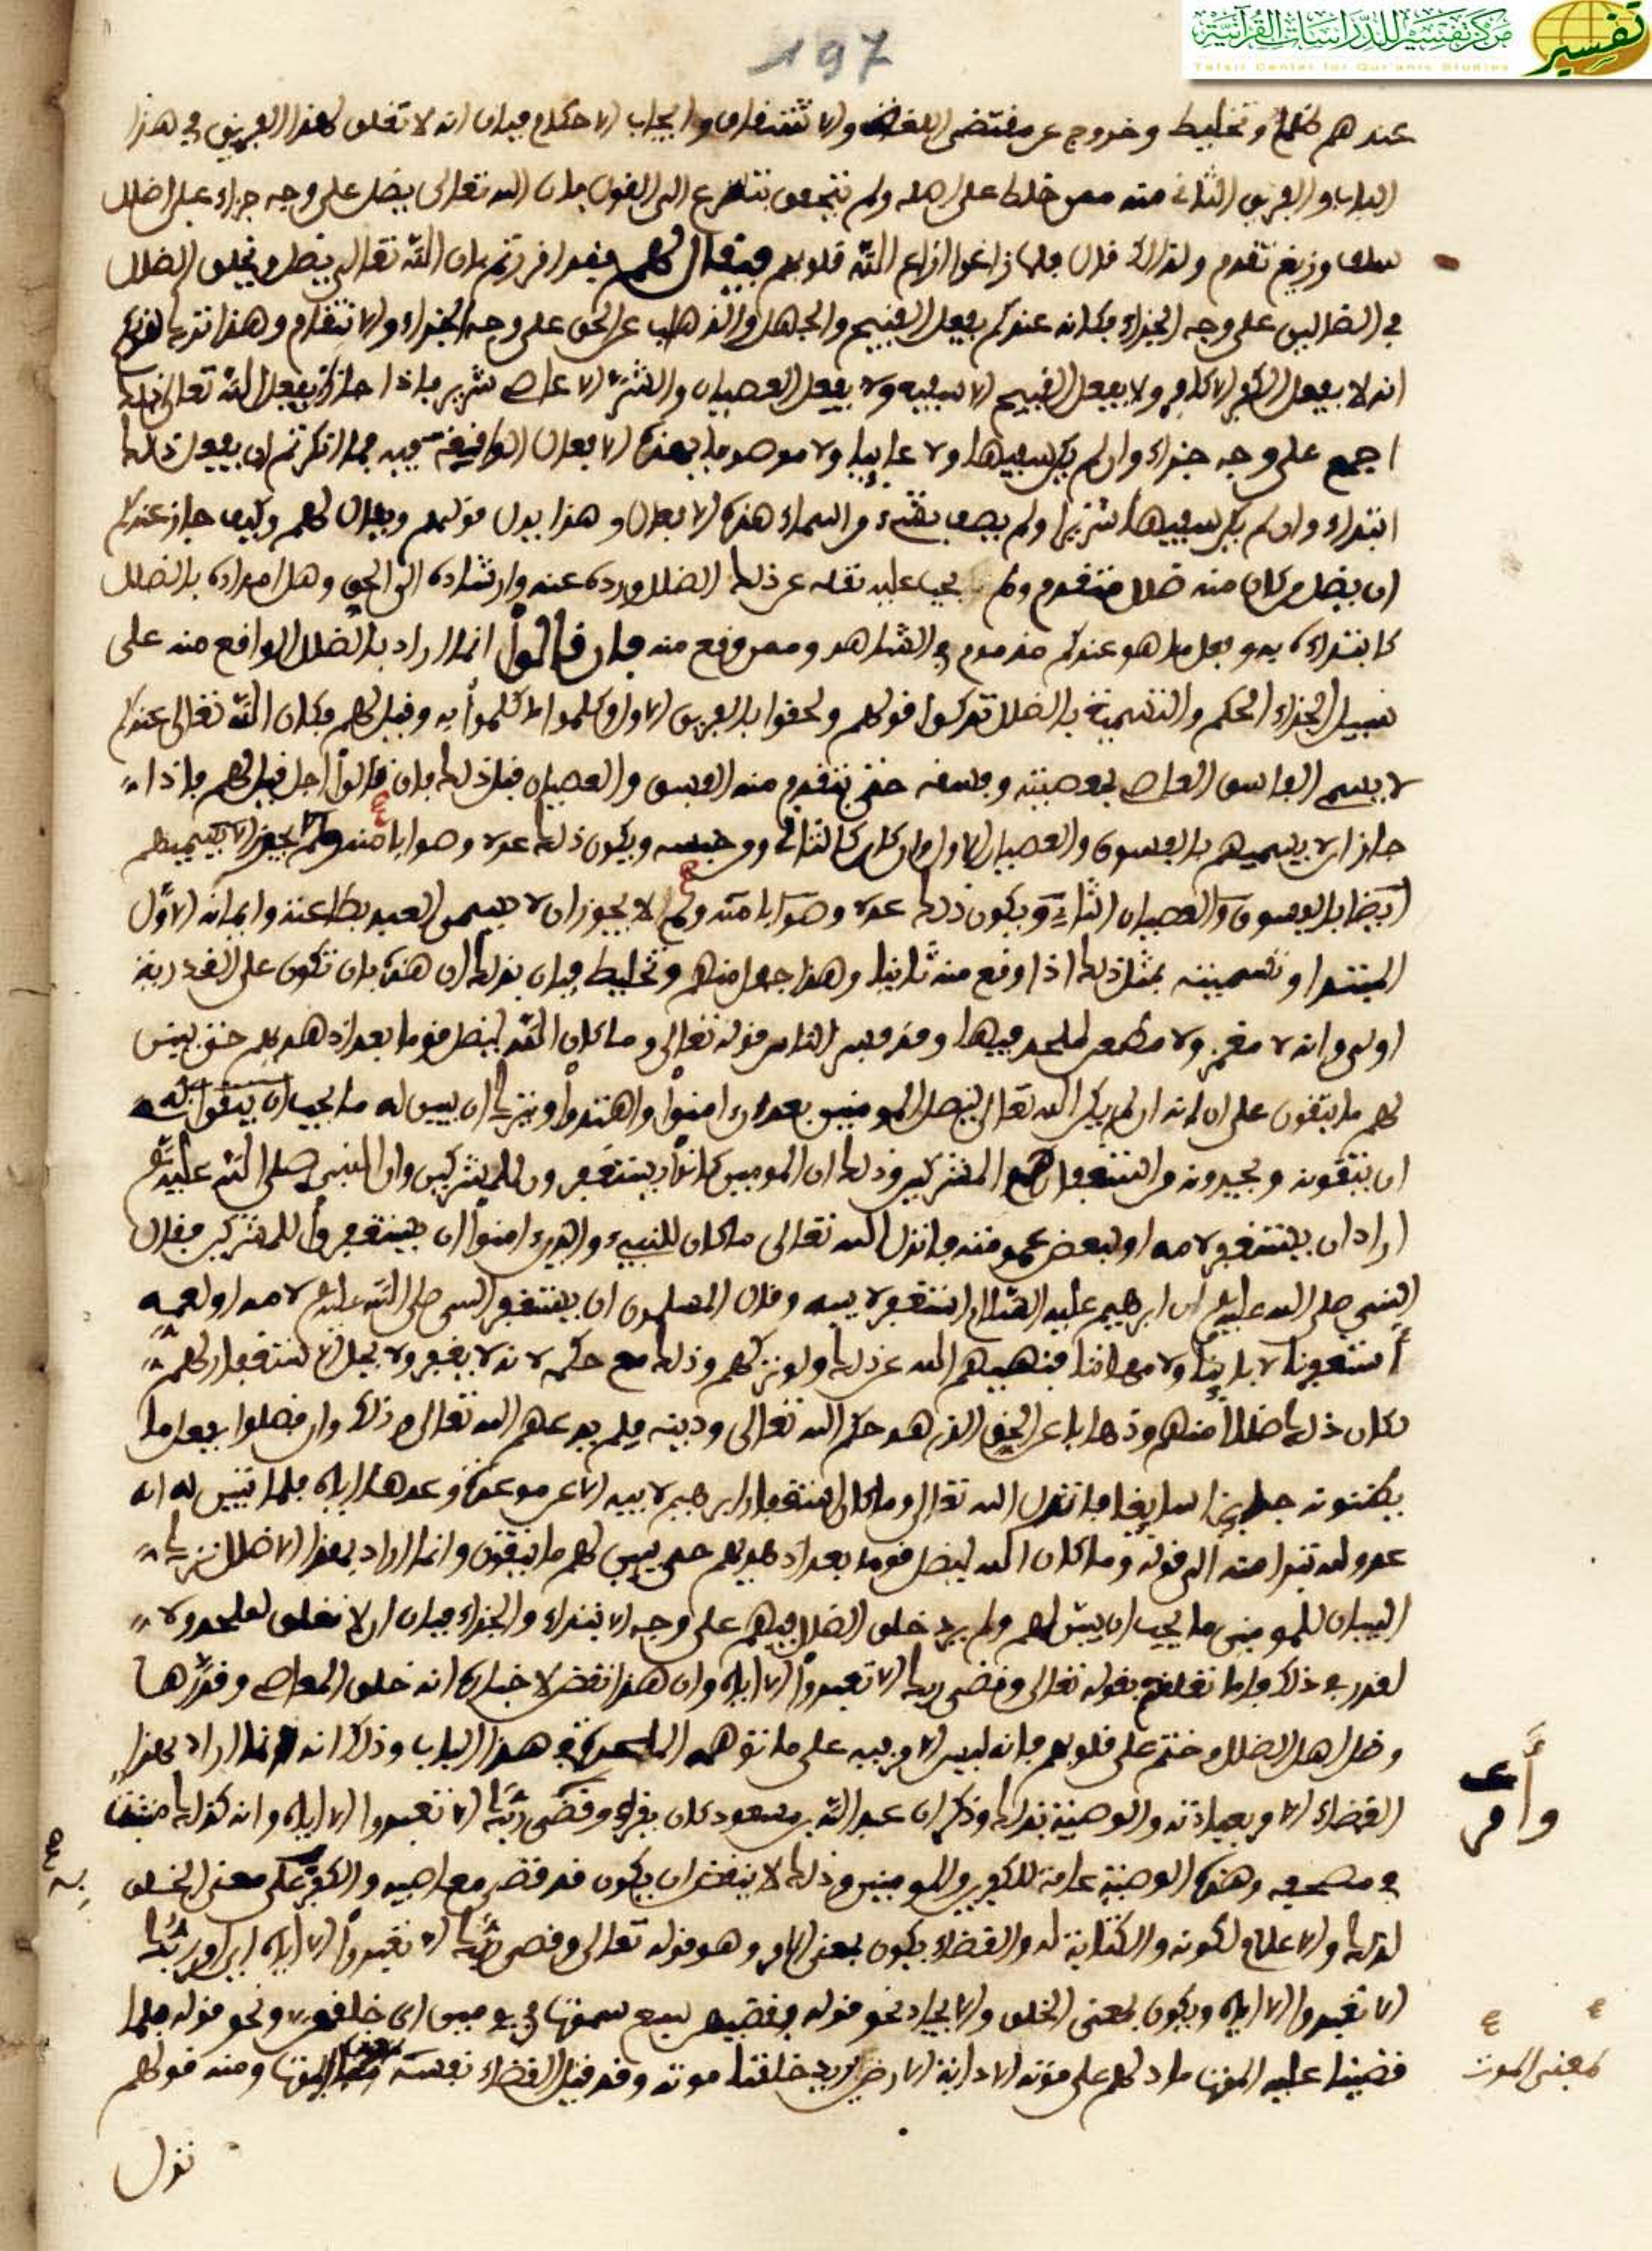 مركز تفسير للدراسات القرآنية
Tafsir Center for Qur'anic Studies
تفسير
197
عندهم ظلم وتخليط وخروج عن مقتضى اللغة والاشتقاق وايجاب الاحكام فبان انه لا تعلق لهذا الفريق في هذا
الباب والفريق الثاني منه ممن خلط على اهله ولم يتحقق بتسرع الى القول بان الله تعالى يضل على وجه جزاء على اضلال
سلف وزيغ تقدم ولذلك قال فلما زاغوا ازاغ الله قلوبهم فيقال لهم فقد اقررتم بان الله تعالى يضل ويخلق الضلال
في الضالين على وجه الجزاء فكانه عندكم يفعل القبيح والجهل والذهاب عن الحق على وجه الجزاء والانتقام وهذا ترك لقولكم
انه لا يفعل الكفر الا كافر ولا يفعل القبيح الا سفيه ولا يفعل العصيان والشر الا عاص شرير فاذا جاز ان يفعل الله تعالى ذلك
اجمع على وجه جزاء وان لم يكن سفيها ولا عابثا ولا موصوفا بهذه الافعال الواقعة منه فما انكرتم ان يفعل ذلك
ابتداء وان لم يكن سفيها شريرا ولم يصف بشيء من اسماء هذه الافعال وهذا يبطل قولهم ويقال لهم وكيف جاز عندكم
ان يضل من كان منه ضلال متقدم ولم يجب عليه نقله عن ذلك الضلال ورده عنه وارشاده الى الحق وهل امداده بالضلال
كابتدائه به وفعل ما هو عندكم مذموم في الشاهد وممن وقع منه فان قالوا انما اراد بالضلال الواقع منه على
سبيل الجزاء الحكم والتسمية بالضلال تركوا قولهم ولحقوا بالفريق الاول وكلموا بما كلموا به وقيل لهم فكان الله تعالى عندكم
لا يسمي الفاسق العاصي بمعصيته وفسقه حتى يتقدم منه الفسق والعصيان قبل ذلك فان قالوا اجل قيل لهم فاذا
جاز ان لا يسميهم بالفسوق والعصيان الاول وان كان كالثاني ومن جنسه ويكون ذلك عدلا وصوابا منه ولم يجز الا يسميهم
ايضا بالفسوق والعصيان الثاني ويكون ذلك عدلا وصوابا منه ولم لا يجوز ان لا يسمى العبد بطاعته وايمانه الاول
المبتدا وتسميته بمثل ذلك اذا وقع منه ثانيا وهذا جهل منهم وتخليط فبان بذلك ان هذه بان تكون على القدرية
اولى وانه لا مغمز ولا مطعن لملحد فيها وقد فسر الناس قوله تعالى وما كان الله ليضل قوما بعد اذ هداهم حتى يبين
لهم ما يتقون على انه لم يكن الله تعالى ليضل المومنين بعد ان امنوا واهتدوا ويترك ان يبين له ما يجب ان يتقوا به
ان يتقونه ويحيدونه من استغفارهم المشركين وذلك ان المومنين كانوا يستغفرون للمشركين وان النبي صلى الله عليه
اراد ان يستغفر لامه او لبعض عمومته فانزل الله تعالى ما كان للنبيء والذين امنوا ان يستغفروا للمشركين فقال
النبي صلى الله عليه ان ابرهيم عليه السلام استغفر لابيه وقال المسلمون ان يستغفر النبي صلى الله عليه لامه او لعمه
استغفرنا لابائنا ولامهاتنا فنهيهم الله عن ذلك ولو تركهم وذلك مع حكمه لانه لا يغفر ولا يحل الاستغفار لهم
لكان ذلك ضلالا منهم وذهابا عن الحق الذي هو حكم الله تعالى ودينه فلم يدعهم الله تعالى وذلك وان ضلوا بفعل ما
يظنونه جايزا سايغا فانزل الله تعالى وما كان استغفار ابرهيم لابيه الا عن موعدة وعدها اياه فلما تبين له انه
عدو لله تبرا منه الى قوله وما كان الله ليضل قوما بعد اذ هديهم حتى يبين لهم ما يتقون وانما اراد بهذا الاضلال ترك
البيان للمومنين ما يجب ان يبين لهم ولم يرد خلق الضلال فيهم على وجه الابتداء والجزاء فبان ان لا تعلق لملحد ولا
لقدري في ذلك فاما تعلقهم بقوله تعالى وقضى ربك الا تعبدوا الا اياه وان هذا نقض لاخباره انه خلق المعاصي وقدرها
وضل اهل الضلال وختم على قلوبهم فانه ليس الامر فيه على ما توهمه الملحدة في هذا الباب وذلك انه انما اراد بهذا
القضاء الامر بعبادته والوصية بذلك وذكر ان عبد الله بن مسعود كان يقرا ووصى ربك الا تعبدوا الا اياه وانه كذلك مثبت
في مصحفه وهذه الوصية عامة للكفرين والمومنين وذلك لا ينقض ان يكون قد قضى معاصيه والكفر على معنى الخلق
لذلك والاعلام لكونه والكتابة له والقضاء يكون بمعنى الامر وهو قوله تعالى وقضى ربك الا تعبدوا الا اياه اي امر ربك
الا تعبدوا الا اياه ويكون بمعنى الخلق والايجاد نحو قوله فقضيهن سبع سموات في يومين اي خلقهن ونحو قوله فلما
قضينا عليه الموت ما دلهم على موته الا دابة الارض يريد خلقنا موته وقد قيل القضاء نفسه الموت ومنه قولهم
وأمر
بمعنى الموت
نزل